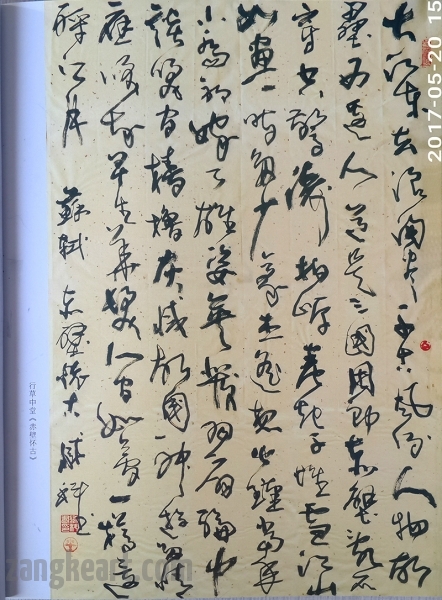 大江东去浪淘尽千古风流人物故
壘西边人道是三国周郎赤壁乱石
穿空惊涛拍岸卷起千堆雪江山
如画一时多少豪杰遥想公瑾当年
小乔初嫁了雄姿英发羽扇纶巾
談笑间樯櫓灰滅故國神遊多情
应笑我早生华发人间如梦一樽还
酹江月 蘇軾 赤壁懷古
行草中堂《赤壁怀古》
2017-05-20 15
zangkeart.com